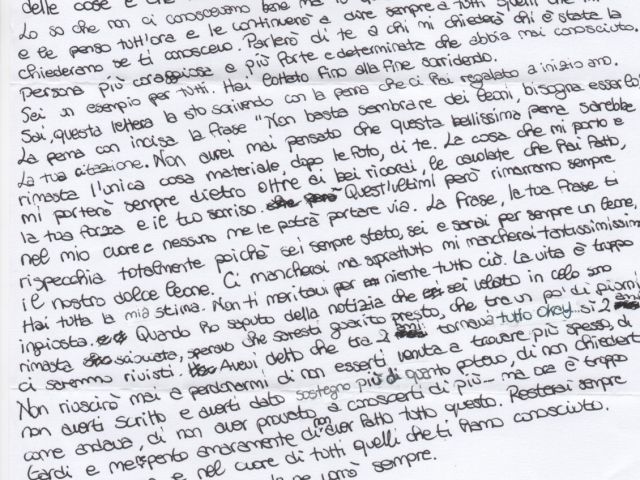 delle cose e che
Lo so che non ci conoscevamo bene ma lo
e le penso tutt'ora e le continuerò a dire sempre a tutti quelli che mi
chiederanno se ti conoscevo. Parlerò di te a chi mi chiederà chi è stata la
persona più coraggiosa e più forte e determinata che abbia mai conosciuto.
Sei un esempio per tutti. Hai lottato fino alla fine sorridendo.
Sai, questa lettera la sto scrivendo con la penna che ci hai regalato a inizio anno.
La penna con incisa la frase "Non basta sembrare dei leoni, bisogna esserlo
La tua citazione. Non avrei mai pensato che questa bellissima penna sarebbe
rimasta l'unica cosa materiale, dopo le foto, di te. La cosa che mi porto e
mi porterò sempre dietro oltre ai bei ricordi, le cavolate che hai fatto,
la tua forza e il tuo sorriso. Quest'ultimi però rimarranno sempre
nel mio cuore e nessuno me le potrà portare via. La frase, la tua frase ti
rispecchia totalmente poichè sei sempre stato, sei e sarai per sempre un leone,
il nostro dolce leone. Ci mancherai ma soprattutto mi mancherai tantussimissim
Hai tutta la mia stima. Non ti meritavi per niente tutto ciò. La vita è troppo
ingiusta. Quando ho saputo della notizia che sei volato in cielo sono
rimasta scioccata, speravo che saresti guarito presto, che tra un po' di giorni
ci saremmo rivisti. Avevi detto che tra 2 anni tornava tutto okay.. sì 2
Non riuscirò mai a perdonarmi di non esserti venuta a trovare più spesso, di
non averti scritto e averti dato sostegno più di quanto potevo, di non chiederti
come andava, di non aver provato a conoscerti di più... ma ora è troppo
tardi e me ne pento amaramente di non aver fatto tutto questo. Resterai sempre
e nel cuore di tutti quelli che ti hanno conosciuto.
sempre.